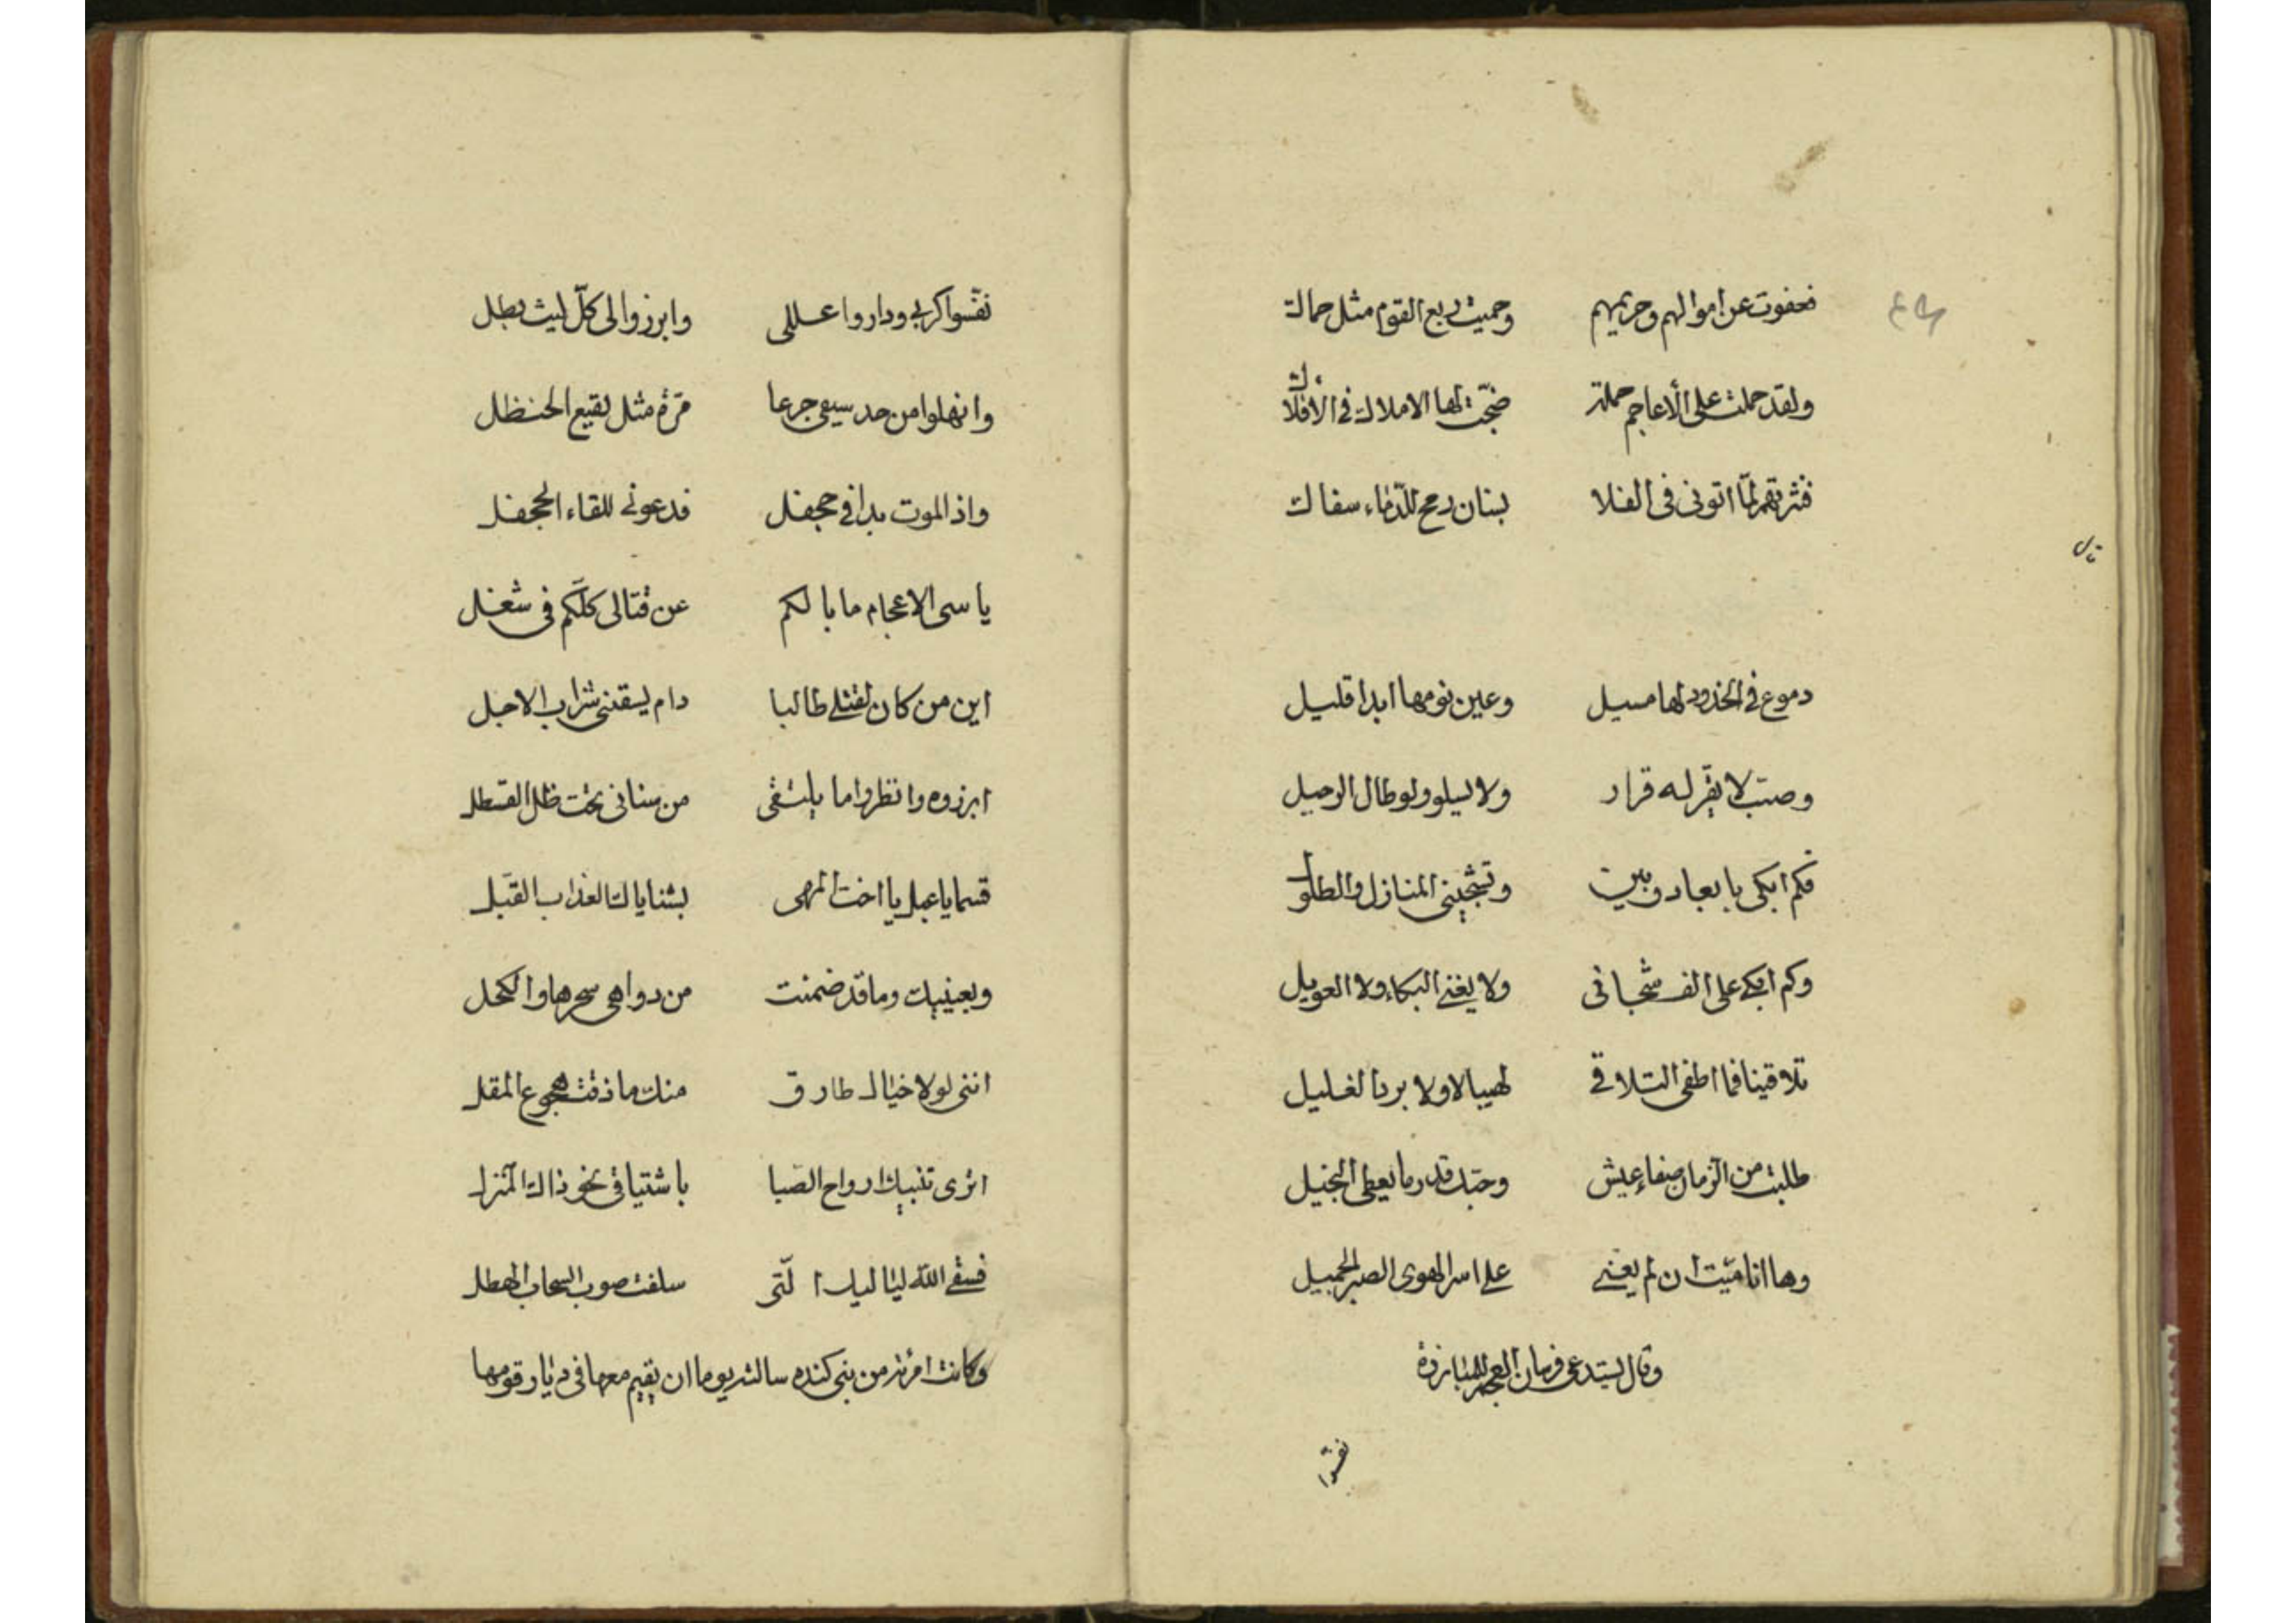 فعفوت عن اموالهم وحريمهم وحميت ربع القوم مثل حماك
ولقد حملت على الأعاجم حملة ضجّت لها الاملاك في الافلاك
فنثرتهم لمّا اتوني في الفلا بسنان رمح للدّماء سفاك
دموع في الخدود لها مسيل وعين نومها ابدا قليل
وصبّ لا يقرّ له قرار ولا يسلو ولو طال الرحيل
فكم ابكي بابعاد وبين وتشجيني المنازل والطلول
وكم ابكي على الف شجاني ولا يغني البكاء ولا العويل
تلاقينا فما اطفى التلاقي لهيبا لا ولا برد الغليل
طلبت من الزمان صفاء عيش وحبّك قدر ما يعطى البخيل
وها انا ميّت ان لم يعني على اسر الهوى الصبر الجميل
وقال يستدعى فرسان العجم للمبارزة
نفّسوا
نفّسوا كربي وداروا عللى وابرزوا لى كلّ ليث بطل
وانهلوا من حد سيفي جرعا مرّة مثل نقيع الحنظل
واذ الموت بدا في جحفل فدعوني للقاء الجحفل
يا سى الاعجام ما بالكم عن قتالى كلّكم في شغل
اين من كان لقتلي طالبا دام يسقني شراب الاجل
ابرزوه وانظروا ما يلتقى من سناني تحت ظل القسطل
قسما يا عبل يا اخت المهى بثناياك العذاب القبل
وبعينيك وما قد ضمنت من دواهى سحرها والكحل
انني لولا خيال طارق منك ما ذقت هجوع المقل
اترى تنبيك ارواح الصّبا باشتياقى نحو ذاك المنزل
فسقى الله لياليك الّتى سلفت صوب السحاب الهطل
وكانت امرئة من بني كنده سالته يوما ان يقيم معها في ديار قومها